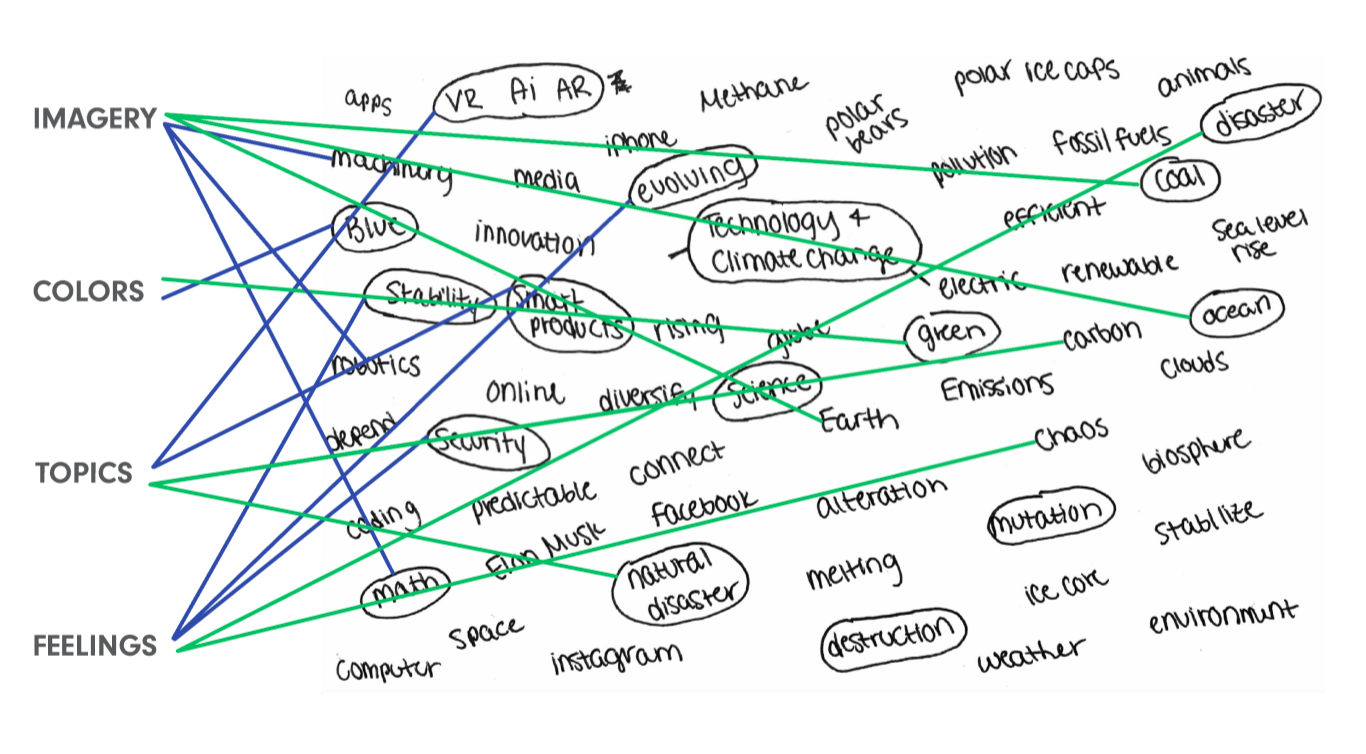 IMAGERY
COLORS
TOPICS
FEELINGS
apps
VR Ai AR
Methane
polar ice caps
animals
disaster
polar
bears
iphone
machinery
media
evolving
pollution
fossil fuels
coal
Blue
innovation
Technology &
Climate Change
efficient
Sea level
rise
electric
renewable
Stability
Smart
products
rising
globe
green
ocean
carbon
robotics
online
diversify
Science
Emissions
Clouds
depend
Security
Earth
Chaos
connect
biosphere
coding
predictable
Facebook
alteration
mutation
Stabilize
Elon Musk
math
natural
disaster
melting
ice core
space
destruction
environment
computer
instagram
weather